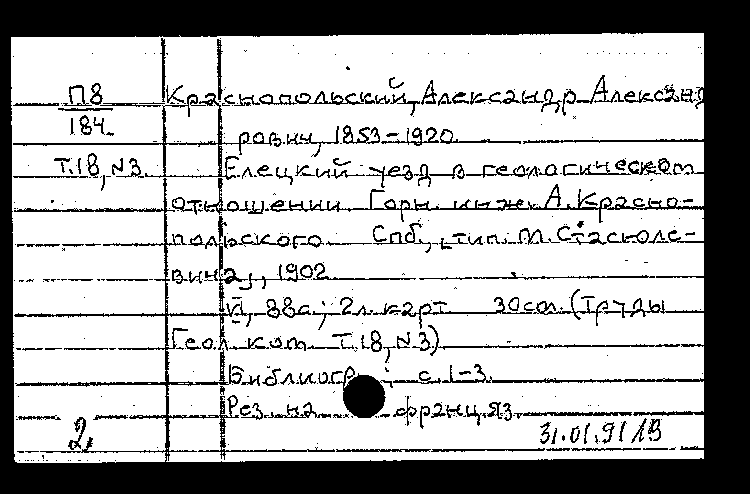 П8 Краснопольский, Александр Александ
184. рович, 1853-1920.
Т.18, №3. Елецкий уезд в геологическом
отношении. Горн. инж. А. Красно-
польского. Спб., тип. М. Стасюле-
вича, 1902
VI, 88с.; 2л. карт. 30см. (Труды
Геол. ком. Т.18, №3).
Библиогр.: с.1-3.
Рез. на франц. яз.
2. 31.01.91